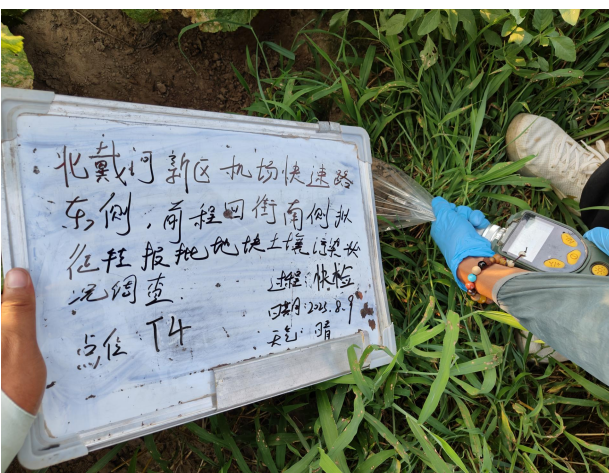 北戴河新区机场快速路
东侧,前程四街南侧拟
征转报批地块土壤污染状
况调查
过程:快检
日期:2023.8.9
点位 T4
天气:晴